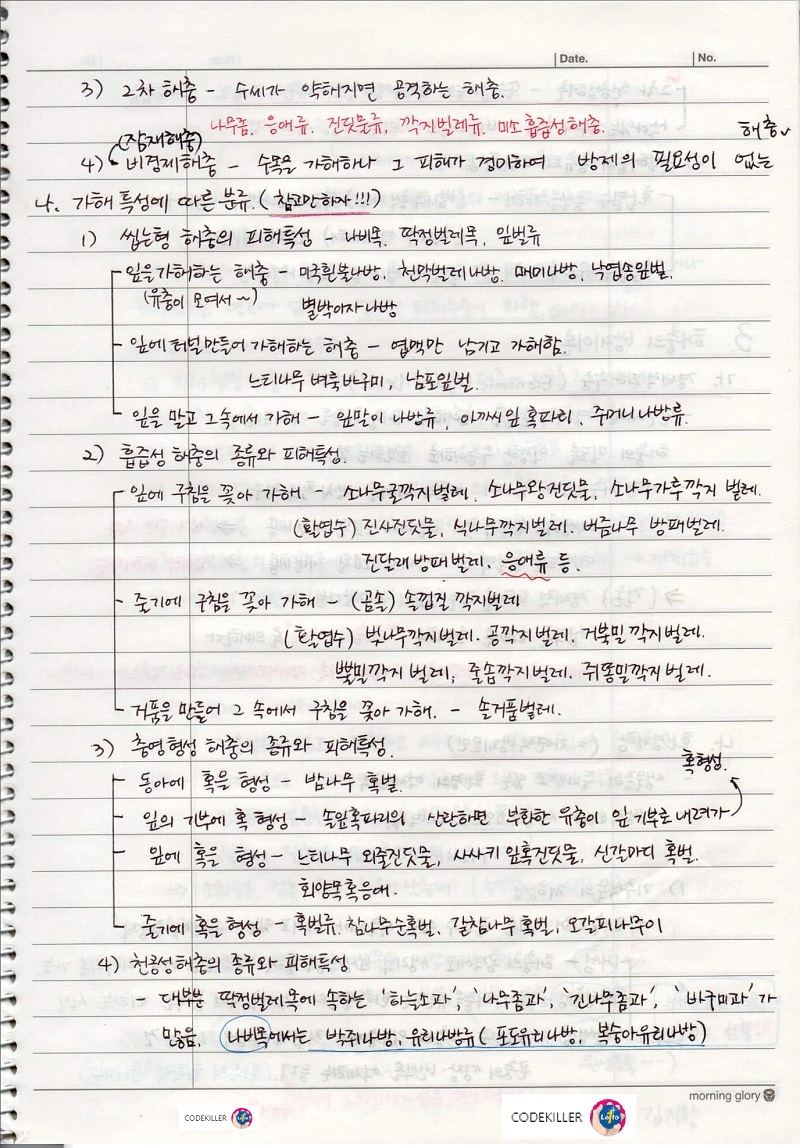 Date. No.
3) 2차 해충 - 수세가 약해지면 공격하는 해충.
나무좀, 응애류, 진딧물류, 깍지벌레류, 미소흡즙성해충.
(잠재해충) 해충
4) 비경제해충 - 수목을 가해하나 그 피해가 경미하여 방제의 필요성이 없는
나. 가해 특성에 따른 분류. (참고만하자!!!)
1) 씹는형 해충의 피해특성 - 나비목, 딱정벌레목, 잎벌류
잎을 가해하는 해충 - 미국흰불나방, 천막벌레나방, 매미나방, 낙엽송잎벌,
(유충이 모여서~) 별박이자나방
잎에 터널만들어 가해하는 해충 - 엽맥만 남기고 가해함.
느티나무벼룩바구미, 남포잎벌.
잎을 말고 그속에서 가해 - 잎말이나방류, 아까시잎혹파리, 주머니나방류.
2) 흡즙성 해충의 종류와 피해특성.
잎에 구침을 꽂아 가해 - 소나무굴깍지벌레, 소나무왕진딧물, 소나무가루깍지벌레.
(활엽수) 진사진딧물, 식나무깍지벌레, 버즘나무 방패벌레.
진달래방패벌레, 응애류 등.
줄기에 구침을 꽂아 가해 - (곰솔) 솔껍질 깍지벌레
(활엽수) 벚나무깍지벌레, 공깍지벌레, 거북밀깍지벌레.
뿔밀깍지벌레, 줄솜깍지벌레, 쥐똥밀깍지벌레.
거품을 만들어 그 속에서 구침을 꽂아 가해. - 솔거품벌레.
3) 충영형성 해충의 종류와 피해특성.
혹형성.
동아에 혹을 형성 - 밤나무 혹벌.
잎의 기부에 혹 형성 - 솔잎혹파리의 산란하면 부화한 유충이 잎기부로 내려가
잎에 혹을 형성 - 느티나무 외줄진딧물, 사사키 잎혹진딧물, 신갈마디 혹벌.
회양목혹응애.
줄기에 혹을 형성 - 혹벌류, 참나무순혹벌, 갈참나무 혹벌, 오갈피나무이
4) 천공성해충의 종류와 피해특성
- 대부분 딱정벌레목에 속하는 '하늘소과', '나무좀과', '긴나무좀과', '바구미과'가
많음. 나비목에서는 박쥐나방, 유리나방류 (포도유리나방, 복숭아유리나방)
morning glory
CODEKILLER
CODEKILLER Lotto